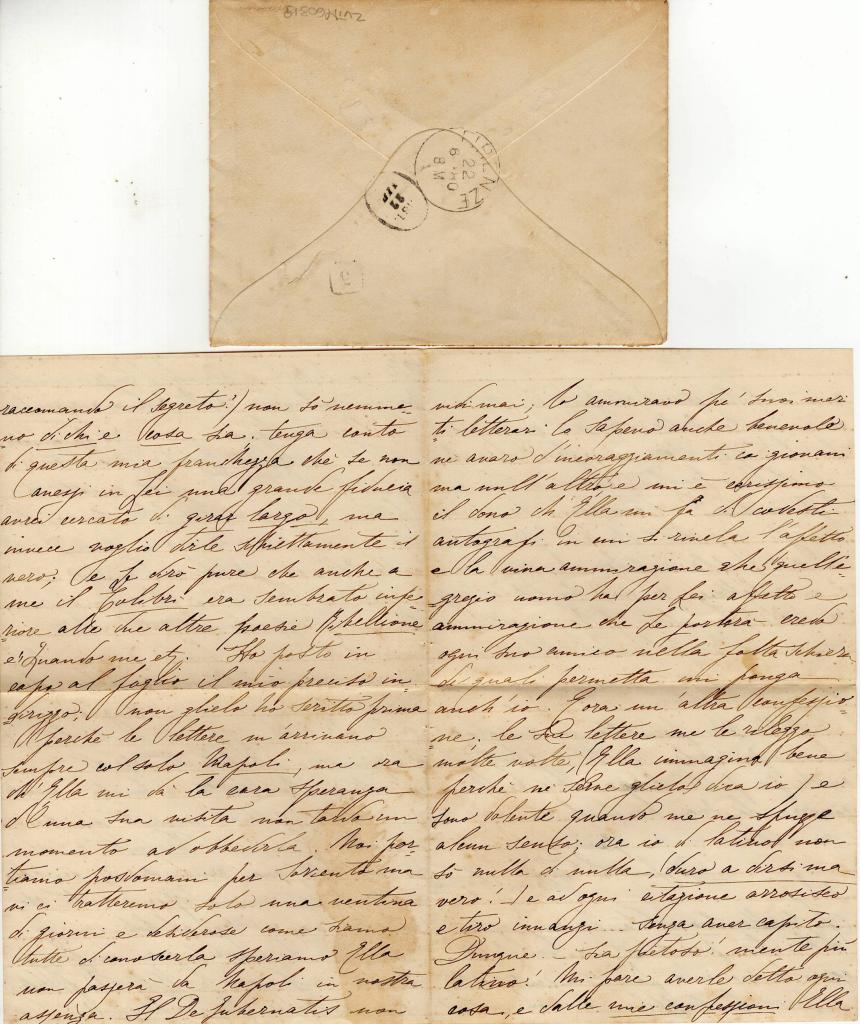 ZVITAG0319
FIRENZE
6
22
80
8 M
22
raccomando il segreto!) non so nemme-
no di chi e cosa sia. tenga conto
di questa mia franchezza chè se non
avessi in Lei una grande fiducia
avrei cercato di girar largo, ma
invece voglio dirle schiettamente il
vero; e Le dirò pure che anche a
me il Colibrì era sembrato infe-
riore alle due altre poesie Ribellione
e Quando me et. Ho posto in
capo al foglio il mio preciso in-
dirizzo; non glielo ho scritto prima
perchè le lettere m'arrivano
sempre col solo Napoli, ma ora
ch'Ella mi dà la cara speranza
d'una sua visita non tardo un
momento ad obbedirla. Noi par-
tiamo posdomani per Sorrento ma
vi ci tratteremo solo una ventina
di giorni e desiderose come siamo
tutte di conoscerla speriamo Ella
non passerà da Napoli in nostra
assenza. Il De Gubernatis non
vidi mai; lo ammiravo pe' suoi meri-
ti letterari lo sapevo anche benevolo
nè avaro d'incoraggiamenti co' giovani
ma null'altro e mi è carissimo
il dono ch'Ella mi fa di codesti
autografi in cui si rivela l'affetto
e la viva ammirazione che quell'e-
gregio uomo ha per Lei affetto e
ammirazione che Le porterà credo
ogni suo amico nella fatta schiera
di quali permetta mi ponga
anch'io. E ora un'altra confessio-
ne; le sue lettere me le rileggo
molte volte, (Ella immagina bene
perchè nè serve glielo dica io) e
sono dolente quando me ne sfugge
alcun senso; ora io di latino non
so nulla di nulla, (duro a dirsi ma
vero!) e ad ogni citazione arrossisco
e tiro innanzi... senza aver capito.
Dunque - sia pietoso! niente più
latino! Mi pare averle detto ogni
cosa, e dalle mie confessioni Ella